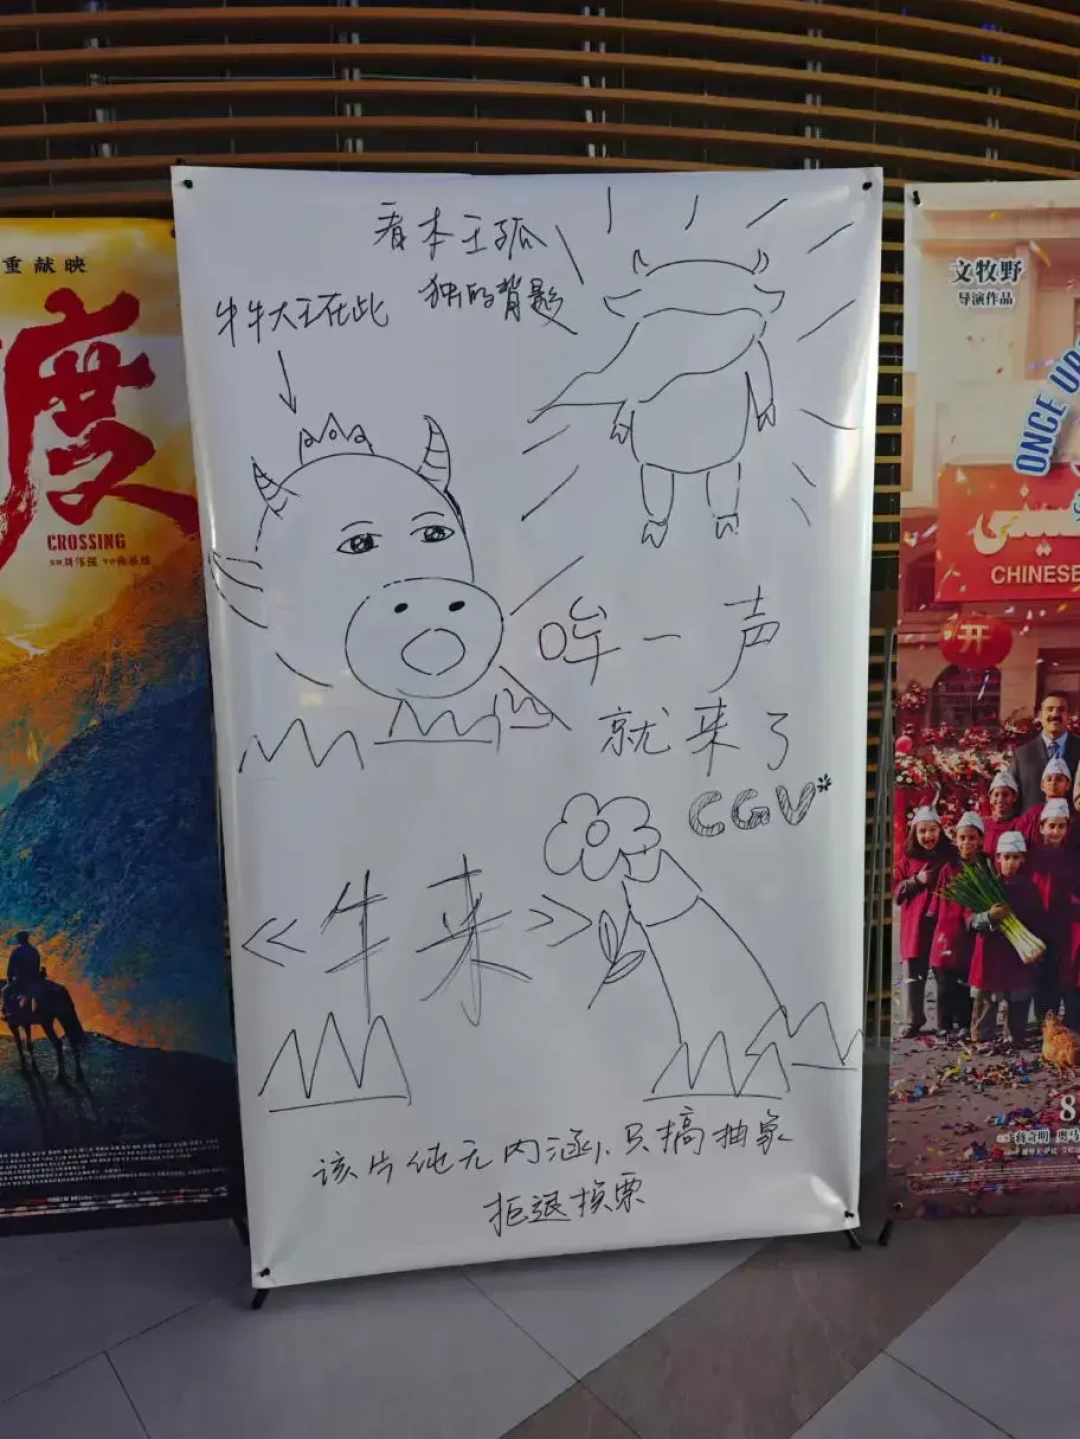 看本王孤
独的背影
牛牛大王在此
哞一声
就来了
CGV
《牛来》
该片纯无内涵,只搞抽象
拒退换票
重献映
度
CROSSING
文牧野
导演作品
ONCE UPO
صيني
CHINESE
开
8